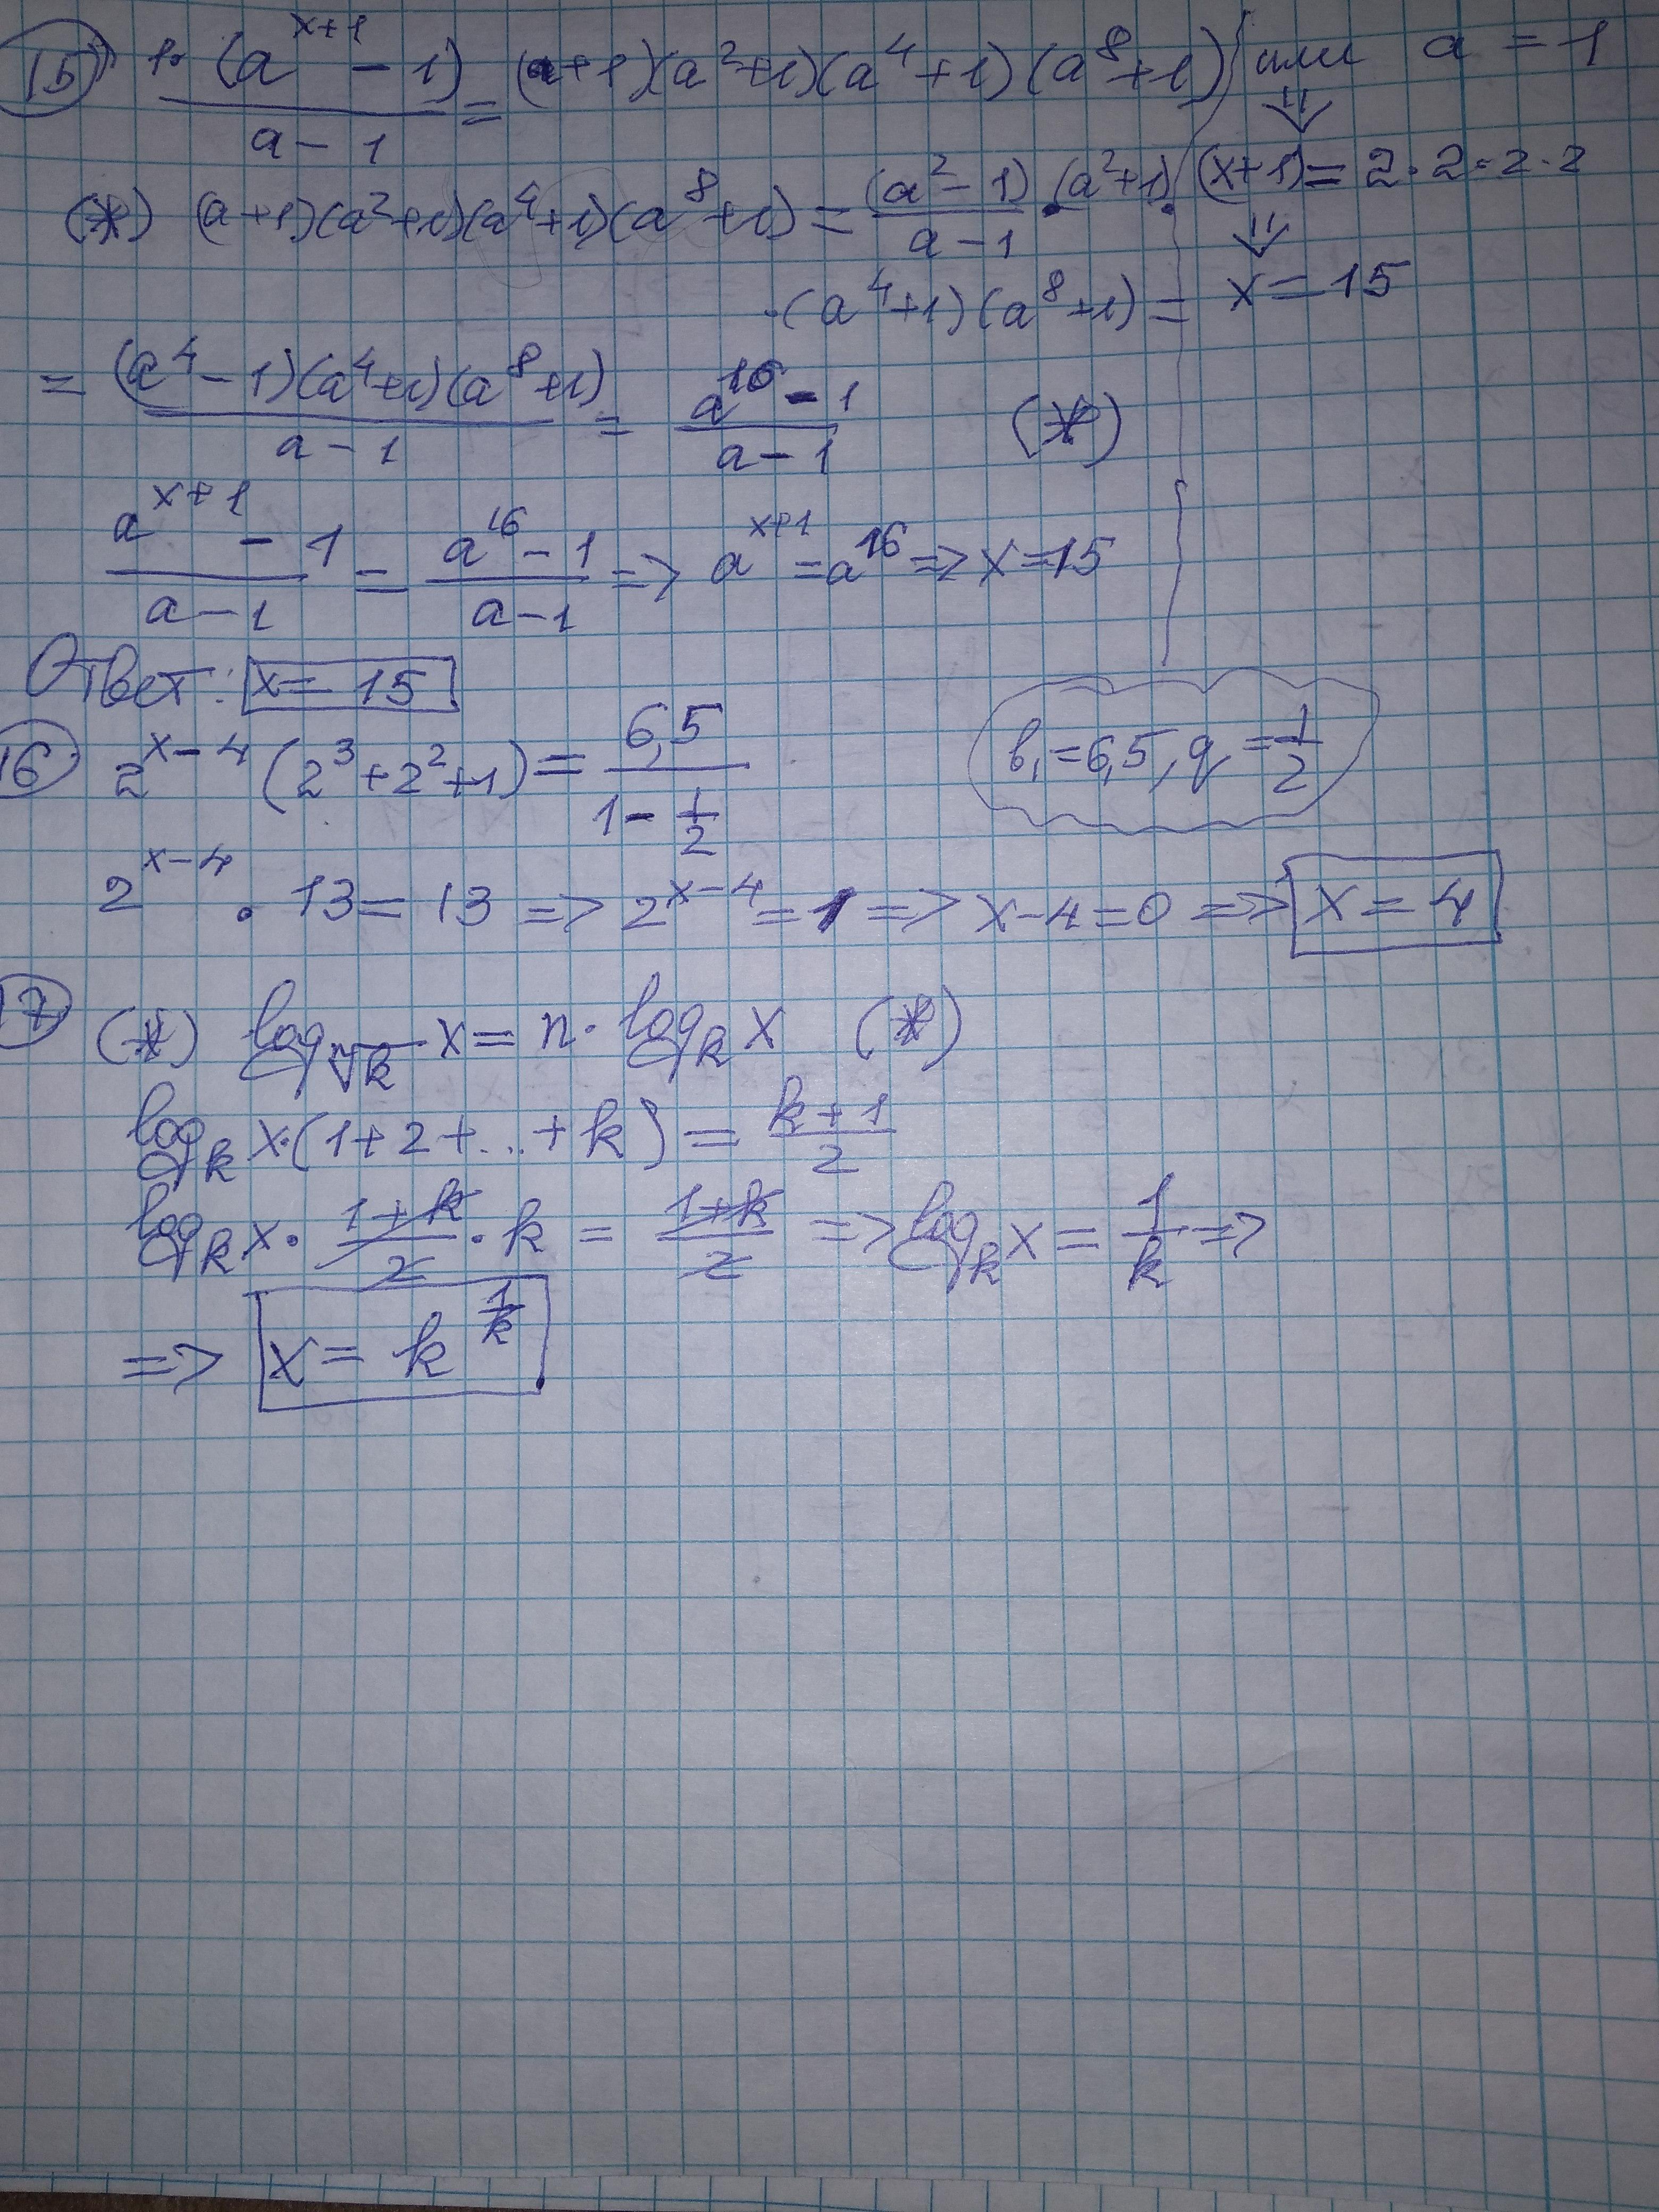 (15) 1·(a^(x+1) - 1)/(a - 1) = (a+1)(a²+1)(a⁴+1)(a⁸+1) или a = 1
⇓
(*) (a+1)(a²+1)(a⁴+1)(a⁸+1) = (a²-1)/(a-1) · (a²+1) ·
(x+1) = 2·2·2·2
⇓
·(a⁴+1)(a⁸+1) =
x = 15
= (a⁴-1)(a⁴+1)(a⁸+1)/(a-1) = (a¹⁶-1)/(a-1) (*)
(a^(x+1) - 1)/(a-1) = (a¹⁶-1)/(a-1) => a^(x+1) = a¹⁶ => x=15
Ответ: x = 15
16) 2^(x-4) (2³+2²+1) = 6,5/(1 - 1/2)
b₁ = 6,5, q = 1/2
2^(x-4) · 13 = 13 => 2^(x-4) = 1 => x-4=0 => x = 4
17) (*) log_(ⁿ√k) x = n · log_k x (*)
log_k x·(1+2+...+k) = (k+1)/2
log_k x · (1+k)/2 · k = (1+k)/2 => log_k x = 1/k =>
=> x = k^(1/k)